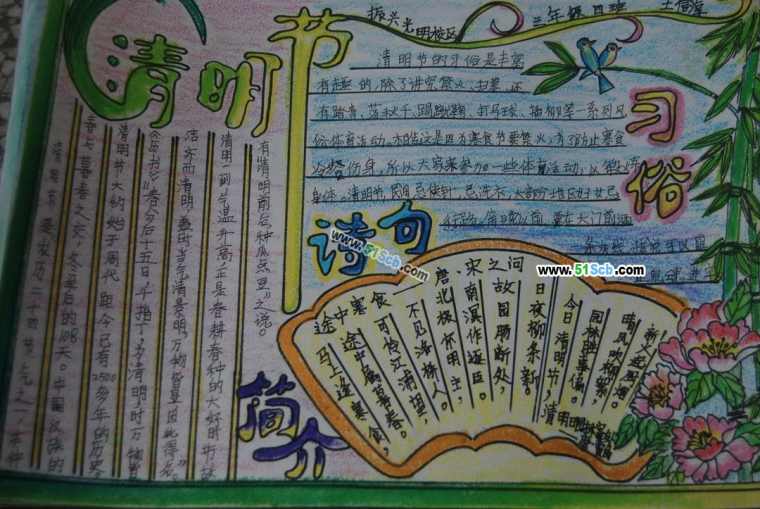 清明节
振兴光明校区
三年级四班
清明节是农历二十四节气之一,在仲
春与暮春之交,冬至后的108天。中国汉族的
清明节大约始于周代,距今已有2500多年的历史
《历书》:"春分后十五日,斗指丁,为清明,时万物皆
洁齐而清明,盖时当气清景明,万物皆显,因此得名。"
清明一到,气温升高,正是春耕春种的大好时节,故
有"清明前后,种瓜点豆"之说。
简介
清明节的习俗是丰富
有趣的,除了讲究禁火、扫墓,还
有踏青、荡秋千、蹴鞠、打马球、插柳等一系列风
俗体育活动。相传这是因为寒食节要禁火,为了防止寒食
冷餐伤身,所以大家来参加一些体育活动,以锻炼
身体。清明节,民间忌使针,忌洗衣,大部分地区妇女忌
行路。傍晚以前,要在大门前洒
习俗
诗句
途中寒食
唐、宋之问
马上逢寒食,
途中属暮春。
可怜江浦望,
不见洛桥人。
北极怀明主,
南溟作逐臣。
故园肠断处,
日夜柳条新。
清明日
今日清明节,
园林胜事偏。
晴风吹柳絮,
新火起厨烟。
www.51Scb.com
www.51Scb.com